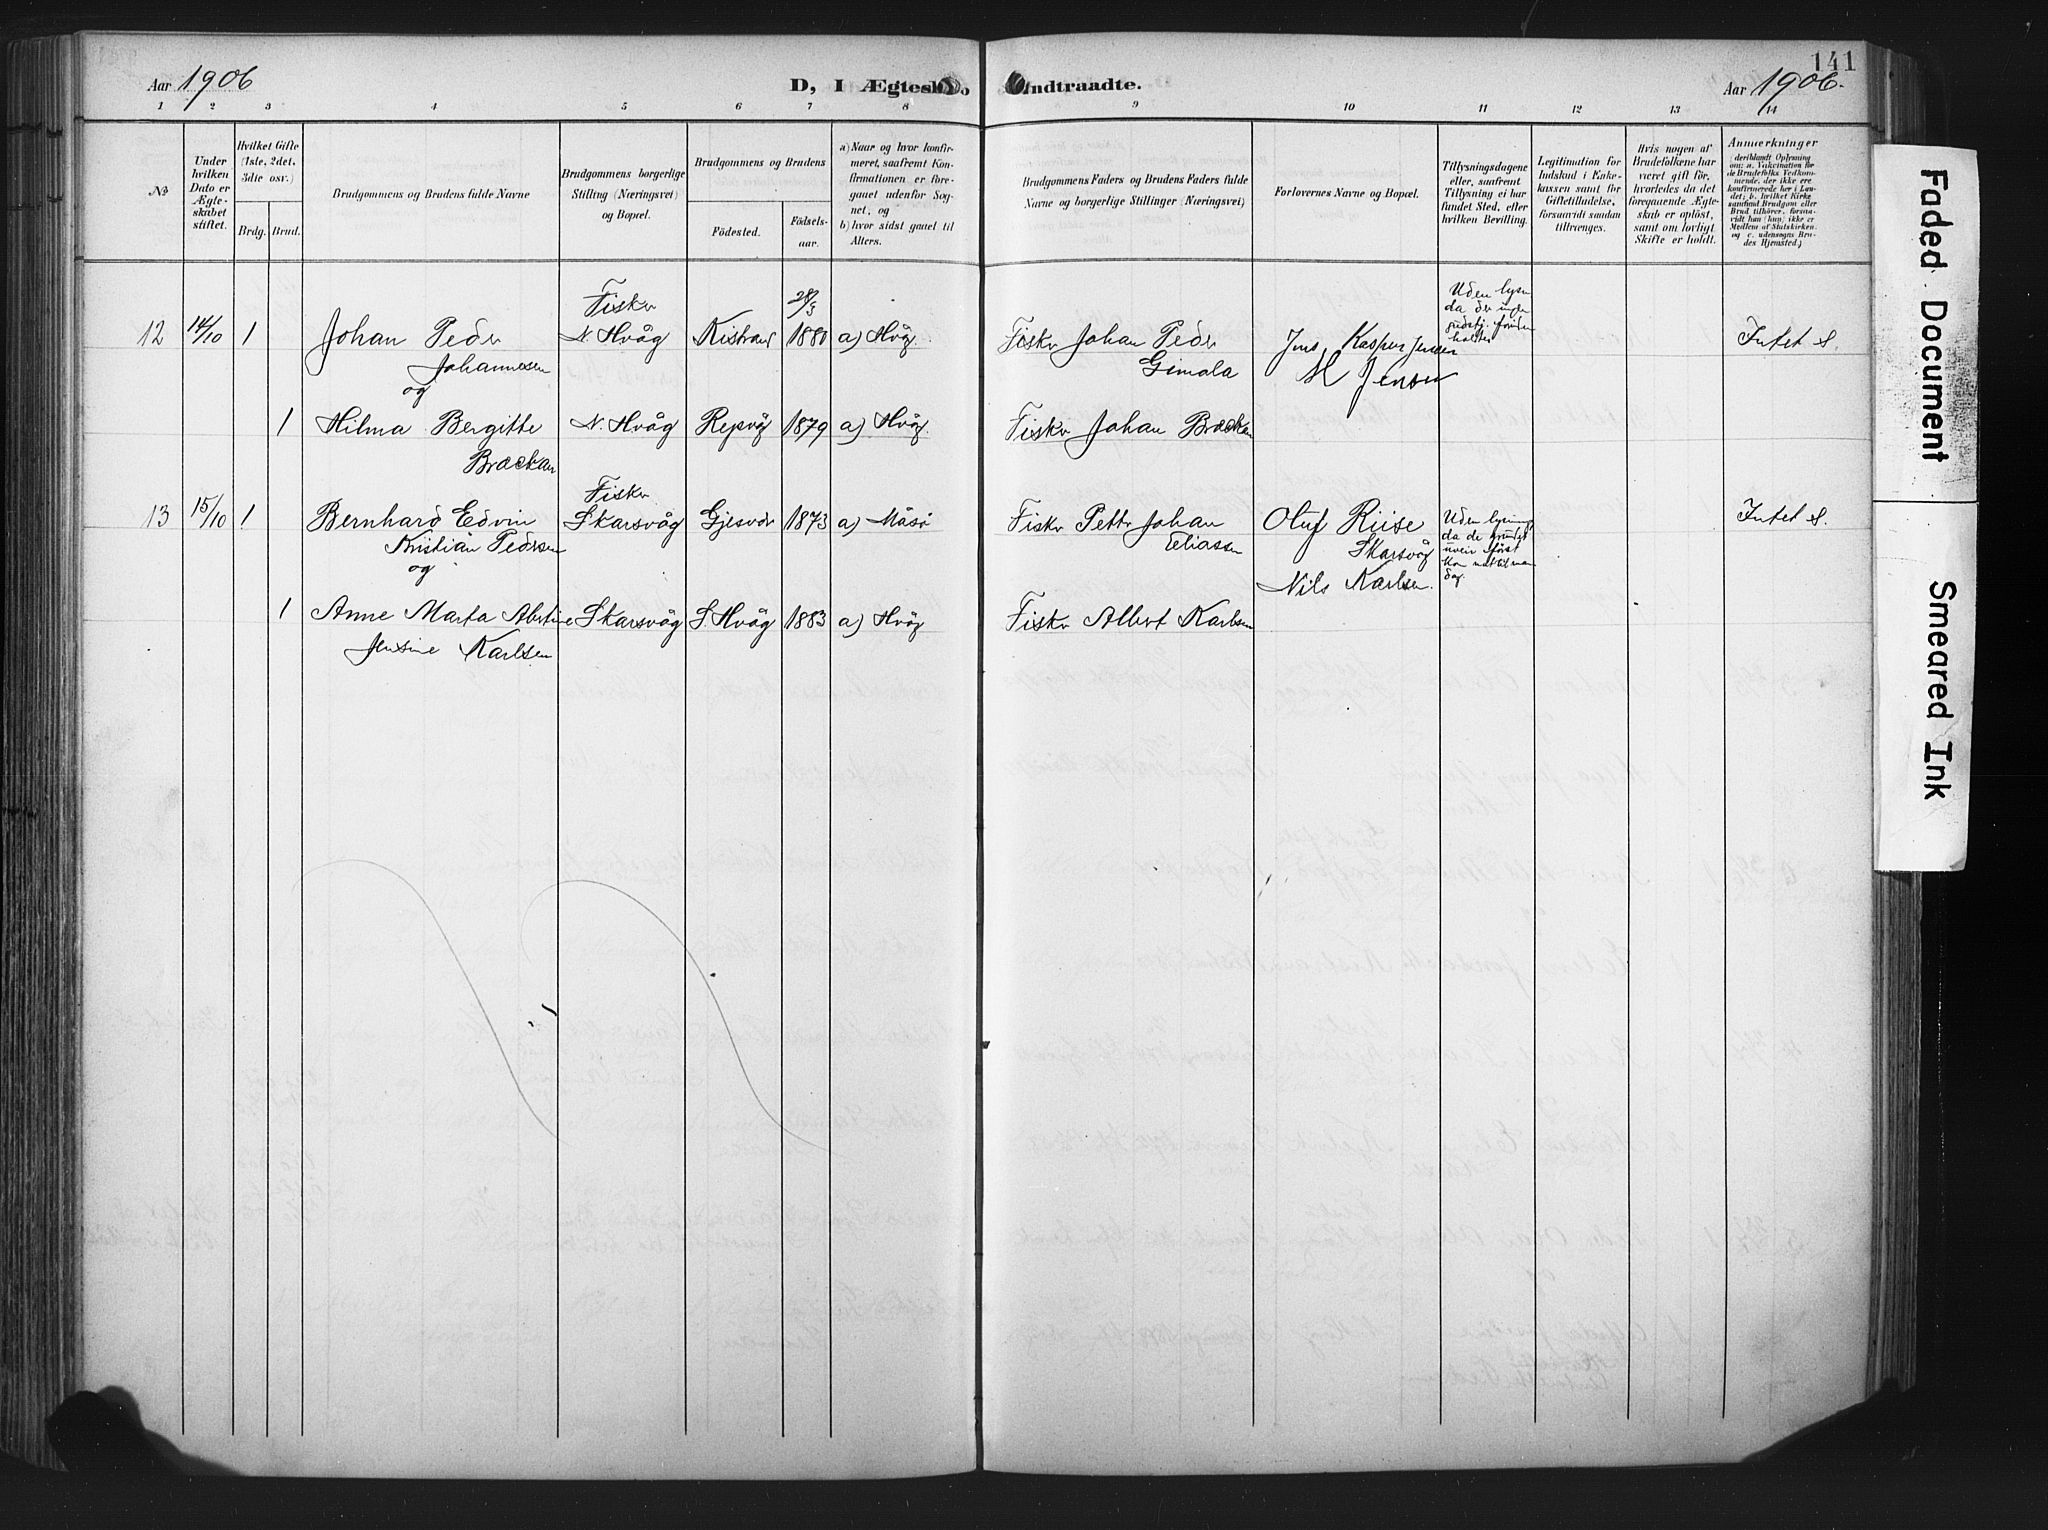 141
Aar 1906
D, I Ægtesk Indtraadte.
Aar 1906.
1 2 3 4 5 6 7 8 9 10 11 12 13 14
No
Under
hvilken
Dato er
Ægte-
skabet
stiftet.
Hvilket Gifte
(1ste, 2det,
3die osv.)
Brdg. Brud.
Brudgommens og Brudens fulde Navne
Brudgommens borgerlige
Stilling (Næringsvei)
og Bopæl.
Brudgommens og Brudens
Födested.
Födsels-
aar.
a) Naar og hvor konfir-
meret, saafremt Kon-
firmationen er fore-
gaaet udenfor Sog-
net, og
b) hvor sidst gaaet til
Alters.
Brudgommens Faders og Brudens Faders fulde
Navne og borgerlige Stillinger (Næringsvei)
Forlovernes Navne og Bopæl.
Tillysningsdagene
eller, saafremt
Tillysning ei har
fundet Sted, efter
hvilken Bevilling.
Legitimation for
Indskud i Enke-
kassen samt for
Giftetilladelse,
forsaavidt saadan
tiltrænges.
Hvis nogen af
Brudefolkene har
været gift før,
hvorledes da det
foregaaende Ægte-
skab er opløst,
samt om lovligt
Skifte er holdt.
Anmærkninger
(deriblandt Oplysning
om: a. Vakcination for
de Brudefolks Vedkom-
mende, der ikke ere
konfirmerede her i Lan-
det; b. hvilket Kirke-
samfund Brudgom eller
Brud tilhörer, forsaa-
vidt han (hun) ikke er
Medlem af Statskirken.
og c. udensogns Bru-
des Hjemsted.)
12 14/10 1 Johan Peder
Johannesen
og
Fisker
N. Hvåg Kistrand 28/3
1880 a) Hvåg. Fisker Johan Peder
Gimola Jens Kasper Jensen
M Jensen Uden lysn
da der ingen
gudstj.
holdtes Intet s.
1 Hilma Bergitte
Brackan N. Hvåg Repvåg 1879 a) Hvåg. Fisker Johan Brackan
13 15/10 1 Bernhard Edvin
Kristian Pedersen
og
Fisker
Skarsvåg Gjesvær 1873 a) Måsö Fisker Petter Johan
Eliassen Oluf Riise
Skarsvåg
Nils Karlsen. Uden lysning,
da de grundet
uveir først
kom nat til man
dag. Intet s.
1 Anne Marta Albertine
Jensine Karlsen Skarsvåg S. Hvåg 1883 a) Hvåg Fisker Albert Karlsen
Faded Document
Smeared Ink